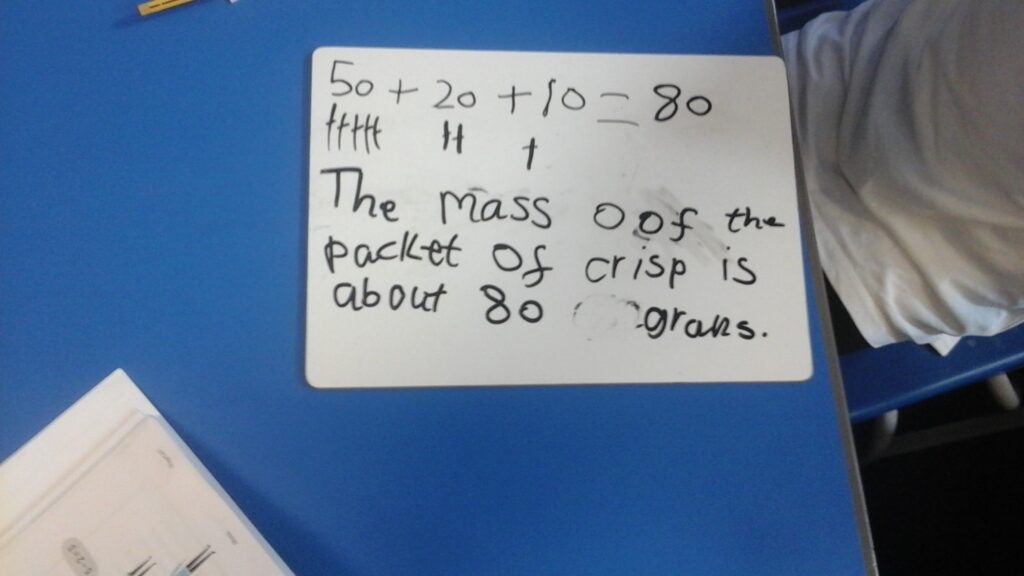 50 + 20 + 10 = 80
The mass O of the
packet of crisp is
about 80 grans.